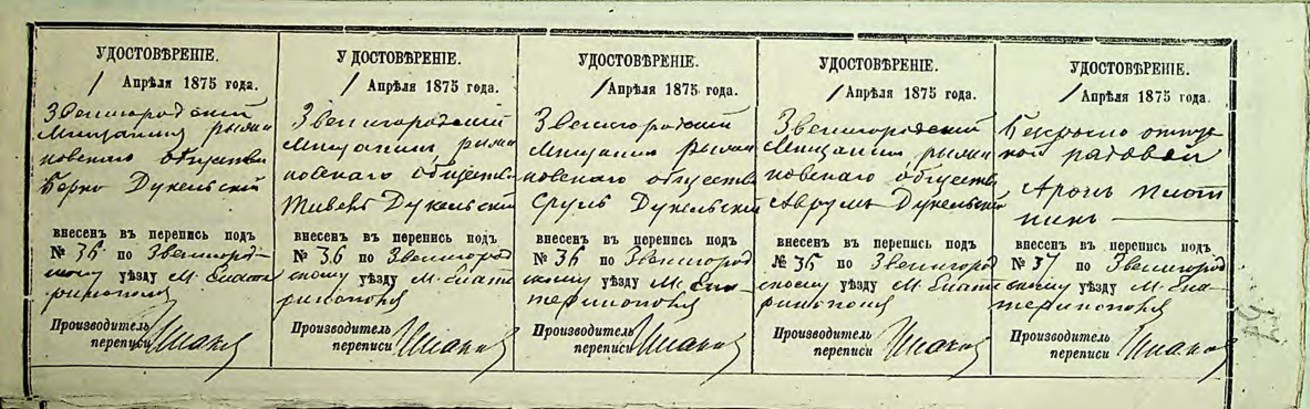 УДОСТОВѢРЕНІЕ.
1 Апрѣля 1875 года.
Звенигородский
мищанинъ рыжа
новскаго обществ
Берко Дукельский
внесенъ въ перепись подъ
№ 36 по Звенигород-
скому уѣзду М. Екате
ринополя
Производитель
переписи
УДОСТОВѢРЕНІЕ.
1 Апрѣля 1875 года.
Звенигородский
мищанинъ рыжа
новскаго обществ
Дукельский
внесенъ въ перепись подъ
№ 36 по Звенигород
скому уѣзду М. Екате
ринополя
Производитель
переписи
УДОСТОВѢРЕНІЕ.
1 Апрѣля 1875 года.
Звенигородский
мищанинъ рыжа
новскаго обществ
Сруль Дукельский
внесенъ въ перепись подъ
№ 36 по Звенигород
скому уѣзду М. Ека-
теринополя
Производитель
переписи
УДОСТОВѢРЕНІЕ.
1 Апрѣля 1875 года.
Звенигородский
мищанинъ рыжа
новскаго обществ
Аврумъ Дукельский
внесенъ въ перепись подъ
№ 36 по Звенигород
скому уѣзду М. Екате
ринополя
Производитель
переписи
УДОСТОВѢРЕНІЕ.
1 Апрѣля 1875 года.
Безсрочно отпуск
ной рядовой
Аронъ Плот
никъ
внесенъ въ перепись подъ
№ 37 по Звенигород
скому уѣзду М. Ека-
теринополя
Производитель
переписи